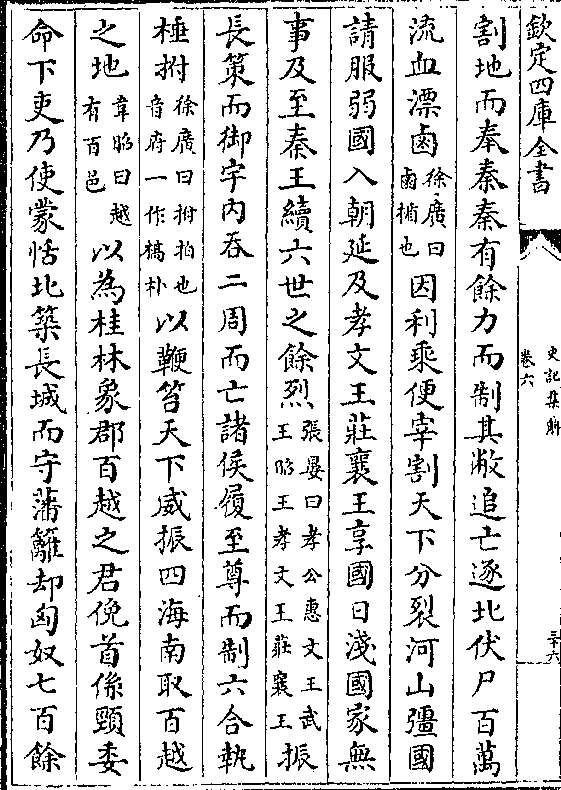 欽定四庫全書
史記集解
卷六
三十六
割地而奉秦秦有餘力而制其敝追亡逐北伏尸百萬
流血漂鹵徐廣曰鹵楯也因利乘便宰割天下分裂河山彊國
請服弱國入朝延及孝文王莊襄王享國日淺國家無
事及至秦王續六世之餘烈張晏曰孝公惠文王武王昭王孝文王莊襄王振
長策而御宇內吞二周而亡諸侯履至尊而制六合執
棰拊徐廣曰拊拍也音府一作槁朴以鞭笞天下威振四海南取百越
之地韋昭曰越有百邑以為桂林象郡百越之君俛首係頸委
命下吏乃使蒙恬北築長城而守藩籬却匈奴七百餘